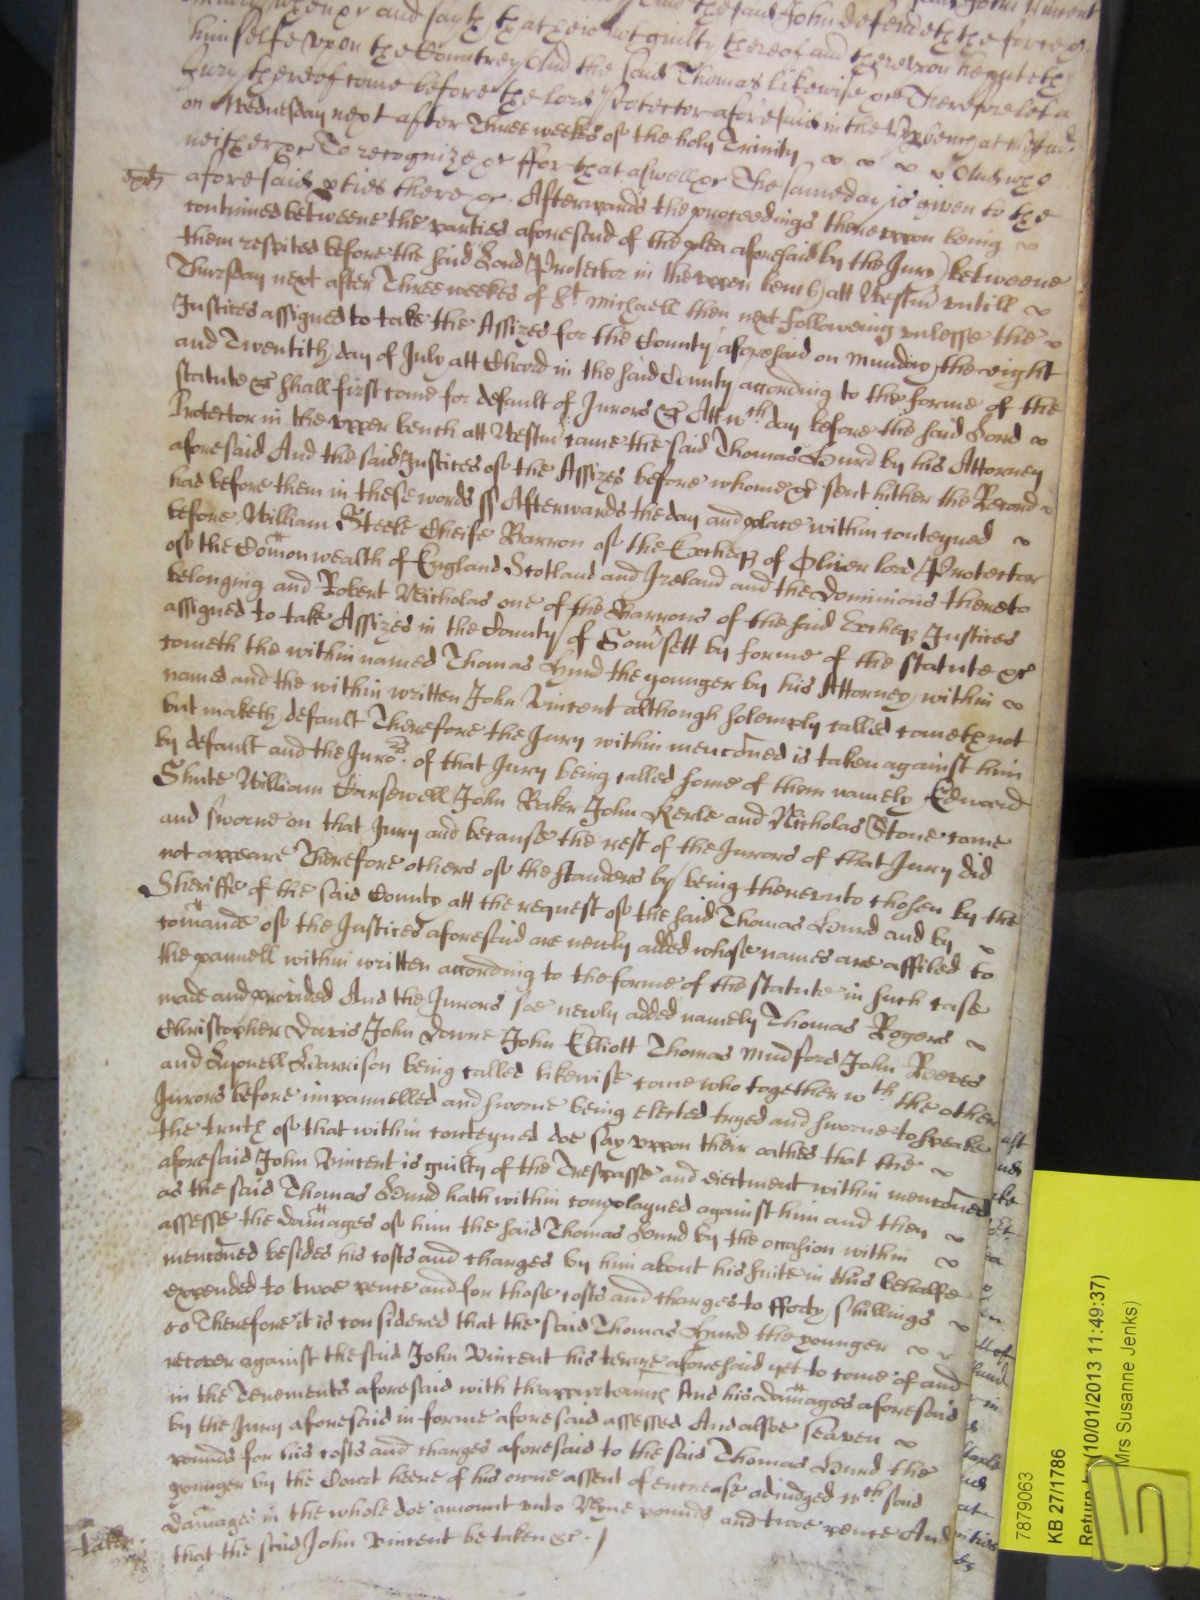 and sayth that hee is not guilty thereof and thereupon he putteth
himselfe vpon the Countrey And the said Thomas likewise &c Therefore let a
Jury thereof come before the lord Protector aforesaid in the vpper bench at Westmr
on Wednesday next after Three weekes of the holy Trinity And who
neither &c To recognize &c ffor that aswell &c The same day is given to the
aforesaid pties there &c. Afterwards the proceedings therevpon being
continued betweene the parties aforesaid of the plea aforesaid by the Jury betweene
them respited before the said Lord Protector in the vpper bench att Westmr vntill
Thursday next after Three weekes of St. Michaell then next following vnlesse the
Justices assigned to take the Assizes for the County aforesaid on Munday the eight
and Twentith day of July att Chard in the said County according to the forme of the
statute &c shall first come for default of Jurors &c Att wch day before the said Lord
Protector in the vpper bench att Westmr came the said Thomas Hurd by his Attorney
aforesaid And the said Justices of the Assizes before whome &c sent hither the Record
had before them in these words ss Afterwards the day and place within conteyned
before William Steele Cheife Barron of the Excheqr of Oliver lord Protector
of the Comon wealth of England Scotland and Ireland and the Dominions thereto
belonging and Robert Nicholas one of the Barrons of the said Excheqr Justices
assigned to take Assizes in the County of Somsett by forme of the statute &c
cometh the within named Thomas Hurd the younger by his Attorney within
named and the within written John Vincent although solemply called cometh not
but maketh default Therefore the Jury within menconed is taken against him
by default and the Juro:rs of that Jury being called some of them namely Edward
Shute William Carsewell John Baker John Kerle and Nicholas Stone came
and sworne on that Jury and because the rest of the Jurors of that Jury did
not appeare Therefore others of the standers by being therevnto chosen by the
Sheriffe of the said County att the request of the said Thomas Hurd and by
comande of the Justices aforesaid are newly added whose names are affiled to
the pannell within written according to the forme of the statute in such case
made and provided And the Jurors soe newly added namely Thomas Rogers
Christopher Davis John Downe John Elliott Thomas Mudford John Reeves
and Lyonell Harrison being called likewise came who together wth the other
Jurors before impannelled and sworne being elected tryed and sworne to speake
the truth of that within conteyned doe say vppon their oathes that the
aforesaid John Vincent is guilty of the Trespasse and eiectment within menconed
as the said Thomas Hurd hath within complayned against him and then
assesse the damages of him the said Thomas Hurd by the occasion within
menconed besides his costs and charges by him about his suite in this behalfe
expended to twoe pence and for those costs and charges to fforty shillings
Therefore it is considered that the said Thomas Hurd the younger
recover against the said John Vincent his terme aforesaid yet to come of and
in the Tenements aforesaid with thappurtenances And his damages aforesaid
by the Jury aforesaid in forme aforesaid assessed And alsoe seaven
pounds for his costs and charges aforesaid to the said Thomas Hurd the
younger by the Court heere of his owne assent of encrease adiudged wch said
damages in the whole doe amount vnto Nyne pounds and twoe pence And
that the said John Vincent be taken &c.
taken
7879063
KB 27/1786
Return (10/01/2013 11:49:37)
Mrs Susanne Jenks)